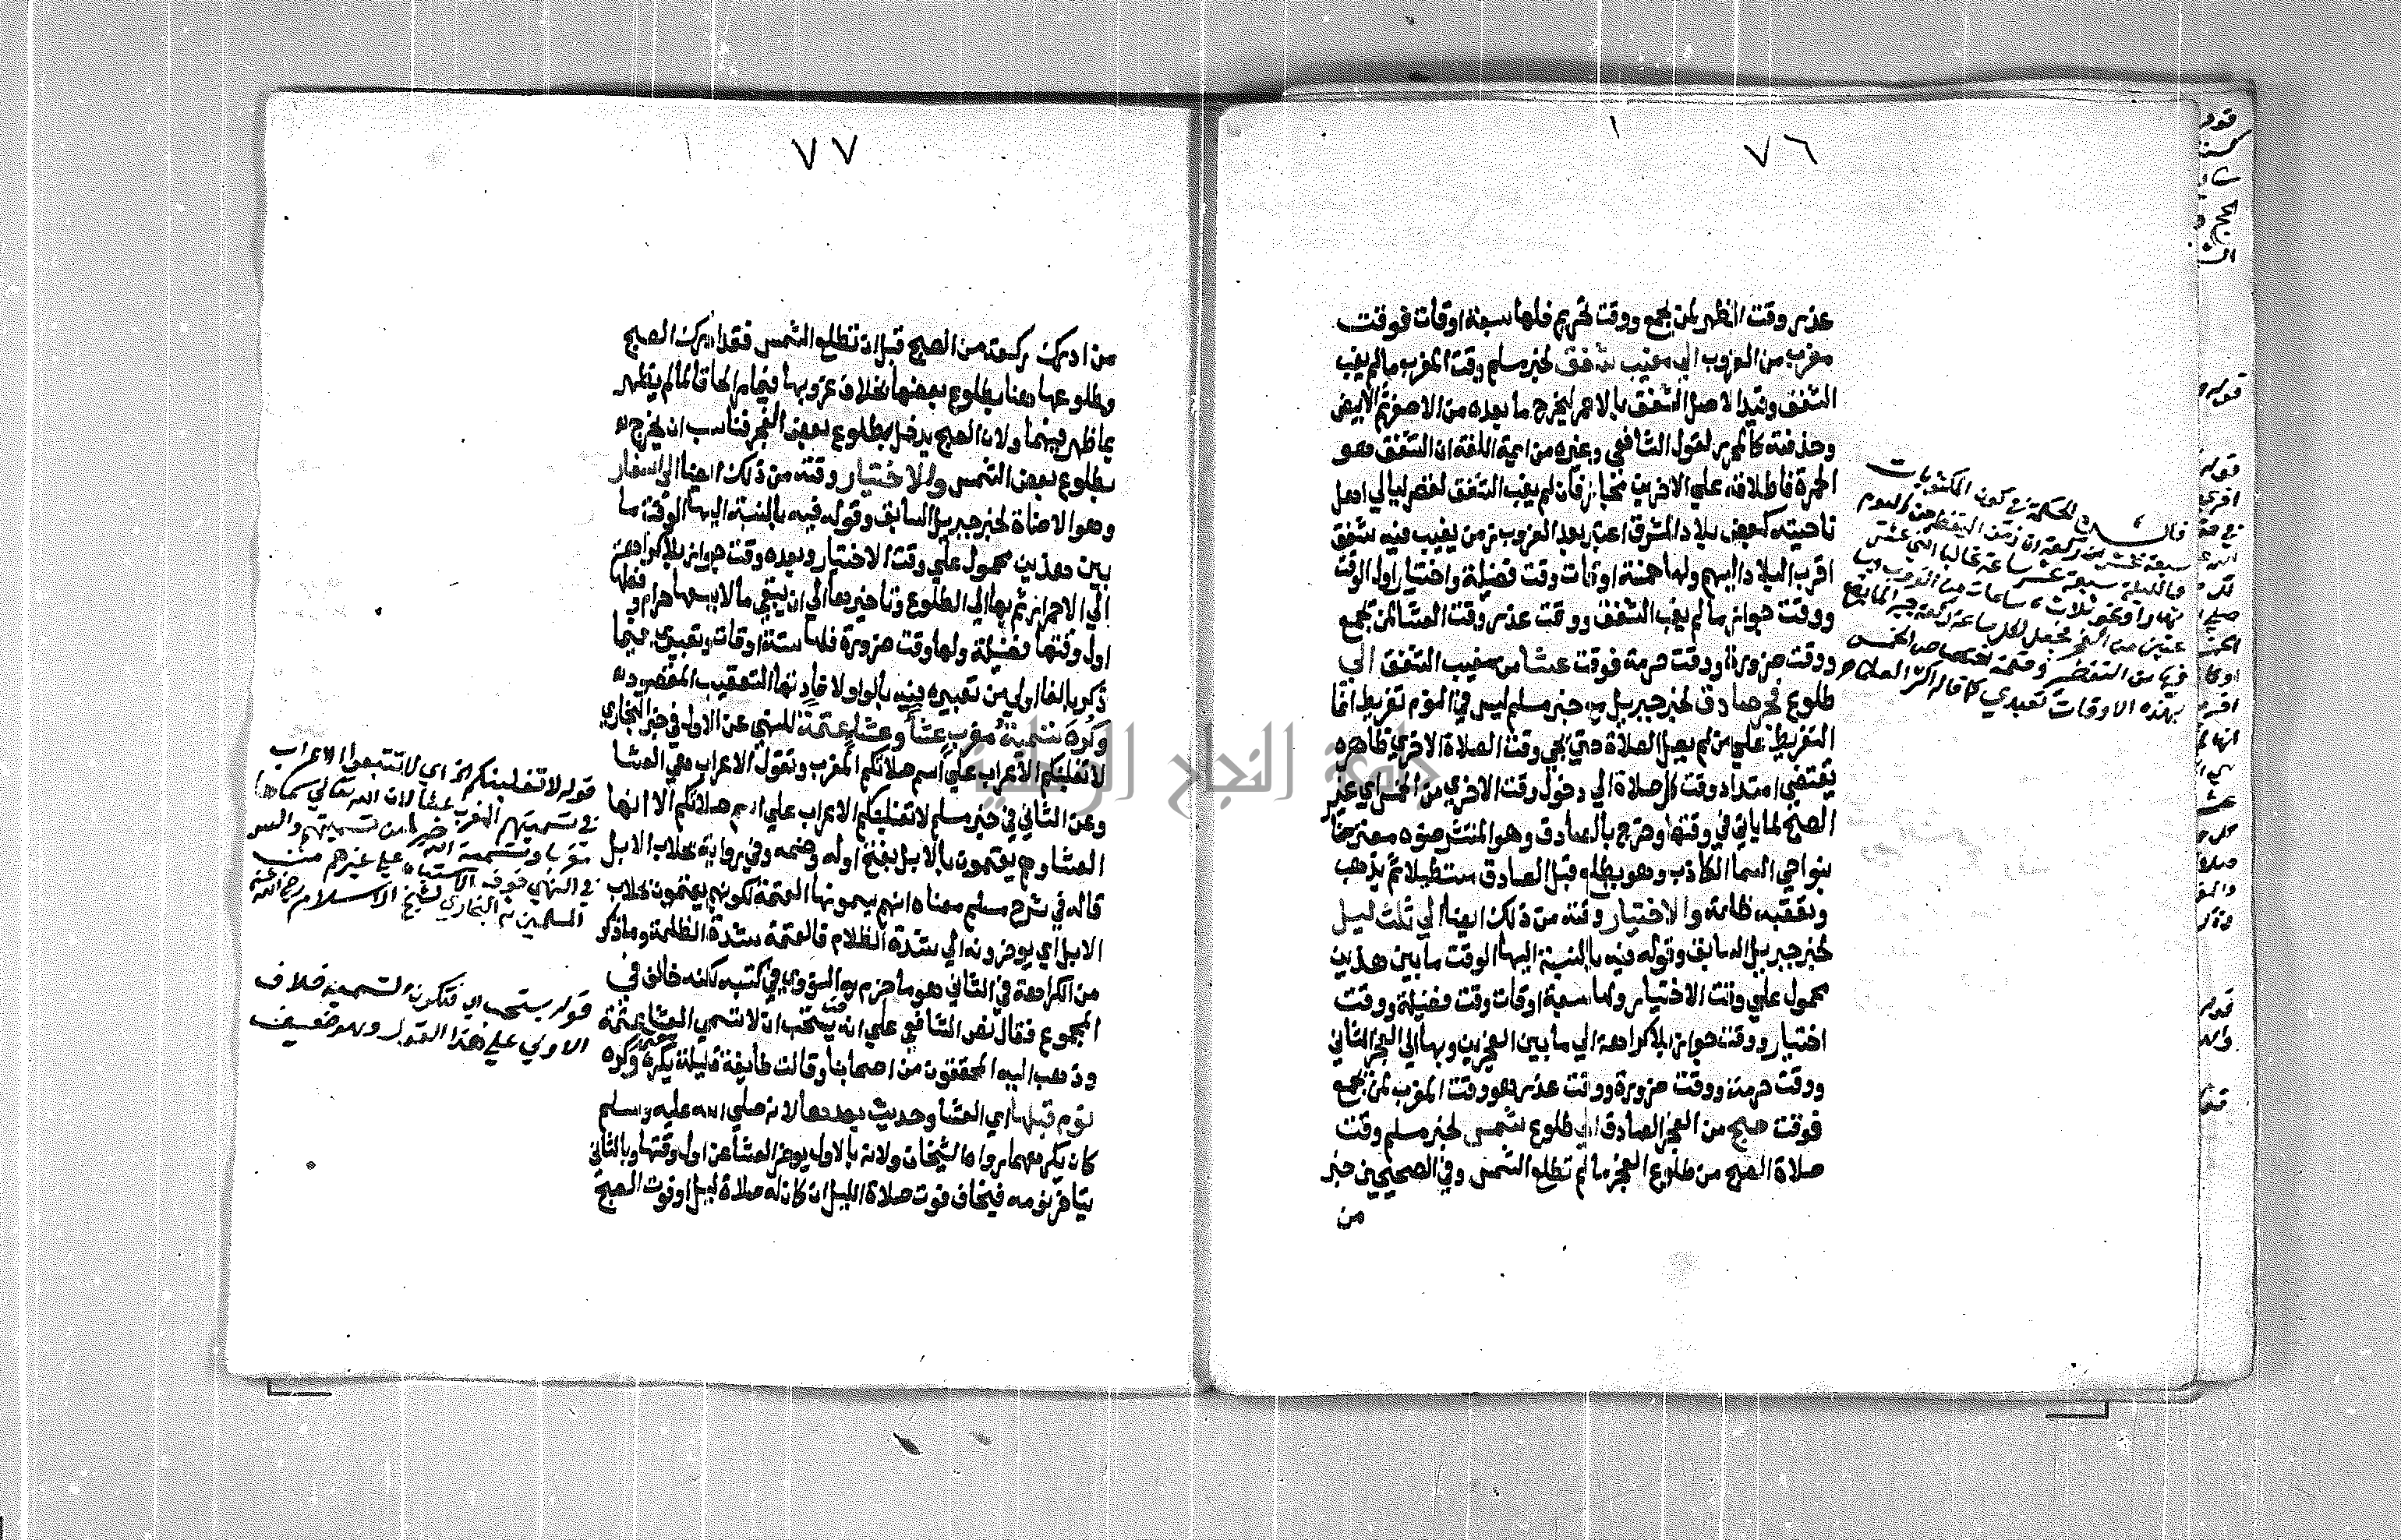 ٧٦
عذر وقت الظهر لمن يجمع ووقت تحريم فلها سبعة اوقات فوقت
مغرب من الغروب الي مغيب شفق لخبر مسلم وقت المغرب ما لم يغب
الشفق وقيد الاصل الشفق بالاحمر ليخرج ما بعده من الاصفر ثم الابيض
وحذفته كالمحرر لقول الشافعي وغيره من ايمة اللغة ان الشفق هو
الحمرة فاطلاقه علي الاخرين مجاز فان لم يغب الشفق لقصر ليالي اهل
ناحيته كبعض بلاد المشرق اعتبر بعد الغروب زمن يغيب فيه شفق
اقرب البلاد اليهم ولها خمسة اوقات وقت فضيلة واختيار اول الوقت
ووقت جواز ما لم يغب الشفق ووقت عذر وقت العشا لمن يجمع
ووقت ضرورة ووقت حرمة فوقت عشا من مغيب الشفق الي
طلوع فجر صادق لخبر جبريل مع خبر مسلم ليس في النوم تفريط انما
التفريط علي من لم يصل الصلاة حتي يجي وقت الصلاة الاخري ظاهره
يقتضي امتداد وقت كل صلاة الي دخول وقت الاخري من الخمس اي غير
الصبح لما ياتي في وقتها وخرج بالصادق وهو المنتشر ضوه معترضا
بنواحي السما الكاذب وهو يطلع قبل الصادق مستطيلا ثم يذهب
وتعقبه ظلمة والاختيار وقته من ذلك ايضا الي ثلث ليل
لخبر جبريل السابق وقوله فيه بالنسبة اليها الوقت ما بين هذين
محمول علي وقت الاختيار ولها سبعة اوقات وقت فضيلة ووقت
اختيار ووقت جواز بلا كراهة الي ما بين الفجرين وبها الي الفجر الثاني
ووقت حرمة ووقت ضرورة ووقت عذر وهو وقت المغرب لمن يجمع
فوقت صبح من الفجر الصادق الي طلوع شمس لخبر مسلم وقت
صلاة الصبح من طلوع الفجر ما لم تطلع الشمس وفي الصحيحين خبر
من
الحكمة في كون المكتوبات
سبعة عشر ركعة ان زمن اليقظة من اليوم
والليلة سبعة عشر ساعة غالبا اثني عشر
نهارا ونحو ثلاث ساعات من الغروب
من الفجر فجعل لكل ساعة ركعة جبرا لما يقع
فيها من التقصير وحكمة اختصاص الخمس
بهذه الاوقات تعبدي كما قاله اكثر العلماء
٧٧
من ادرك ركعة من الصبح قبل ان تطلع الشمس فقد ادرك الصبح
وطلوعها هنا بطلوع بعضها بخلاف غروبها فيما مر الحاقا لما لم يظهر
بما ظهر فيهما ولان الصبح يدخل بطلوع بعض الفجر فناسب ان يخرج
بطلوع بعض الشمس والاختيار وقته من ذلك ايضا الي اسفار
وهو الاضاة لخبر جبريل السابق وقوله فيه بالنسبة اليها الوقت ما
بين هذين محمول علي وقت الاختيار وبعده وقت جواز بلا كراهة
الي الاحمرار ثم بها الي الطلوع وتاخيرها الي ان يبقي ما لا يسعها حرام وفعلها
اول وقتها فضيلة ولها وقت ضرورة فلها ستة اوقات وتعبيري فيما
ذكر بالفا اولي من تعبيره فيه بالواو لافادتها التعقيب المقصود
وكره تسمية مغرب عشا وعشا عتمة للنهي عن الاول في خبر البخاري
لا تغلبنكم الاعراب علي اسم صلاتكم المغرب وتقول الاعراب هي العشا
وعن الثاني في خبر مسلم لا تغلبنكم الاعراب علي اسم صلاتكم الا انها
العشا وهم يعتمون بالابل بفتح اوله وضمه وفي رواية بحلاب الابل
قاله في شرح مسلم معناه انهم يسمونها العتمة لكونهم يعتمون بحلاب
الابل اي يوخرونه الي شدة الظلام فالعتمة شدة الظلمة وما ذكر
من الكراهة في الثاني هو ما جزم به النووي في كتبه لكنه خالف في
المجموع فقال نص الشافعي علي انه يستحب ان لا تسمي العشا عتمة
وذهب اليه المحققون من اصحابنا وقالت طايفة قليلة يكره وكره
نوم قبلها اي العشا وحديث بعدها لانه صلي الله عليه وسلم
كان يكرههما رواه الشيخان ولانه بالاول يوخر العشا عن اول وقتها وبالثاني
يتاخر نومه فيخاف فوت صلاة الليل ان كان له صلاة ليل او فوت الصبح
قوله لا تغلبنكم الخ اي لا تتبعوا الاعراب
في تسميتهم المغرب عشا لان الله تعالي سماها
مغربا وتسمية الله خير من تسميتهم والسر
في النهي خوف الاشتباه علي غيرهم من
المسلمين البخاري لشيخ الاسلام رضي الله عنه
قوله يستحب اي فتكون التسمية خلاف
الاولي علي هذا القول وهو ضعيف
جامعة النجاح الوطنية